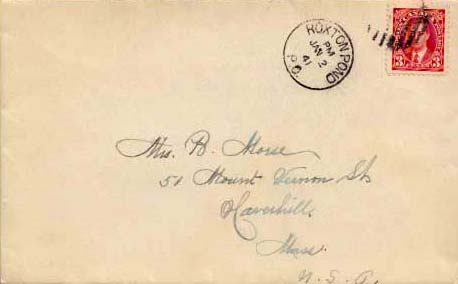 ROXTON POND
PM
JAN 2
41
P.Q.
CANADA
3 3
Mrs. B. Morse
51 Mount Vernon St.
Haverhill,
Mass.
U. S. A.